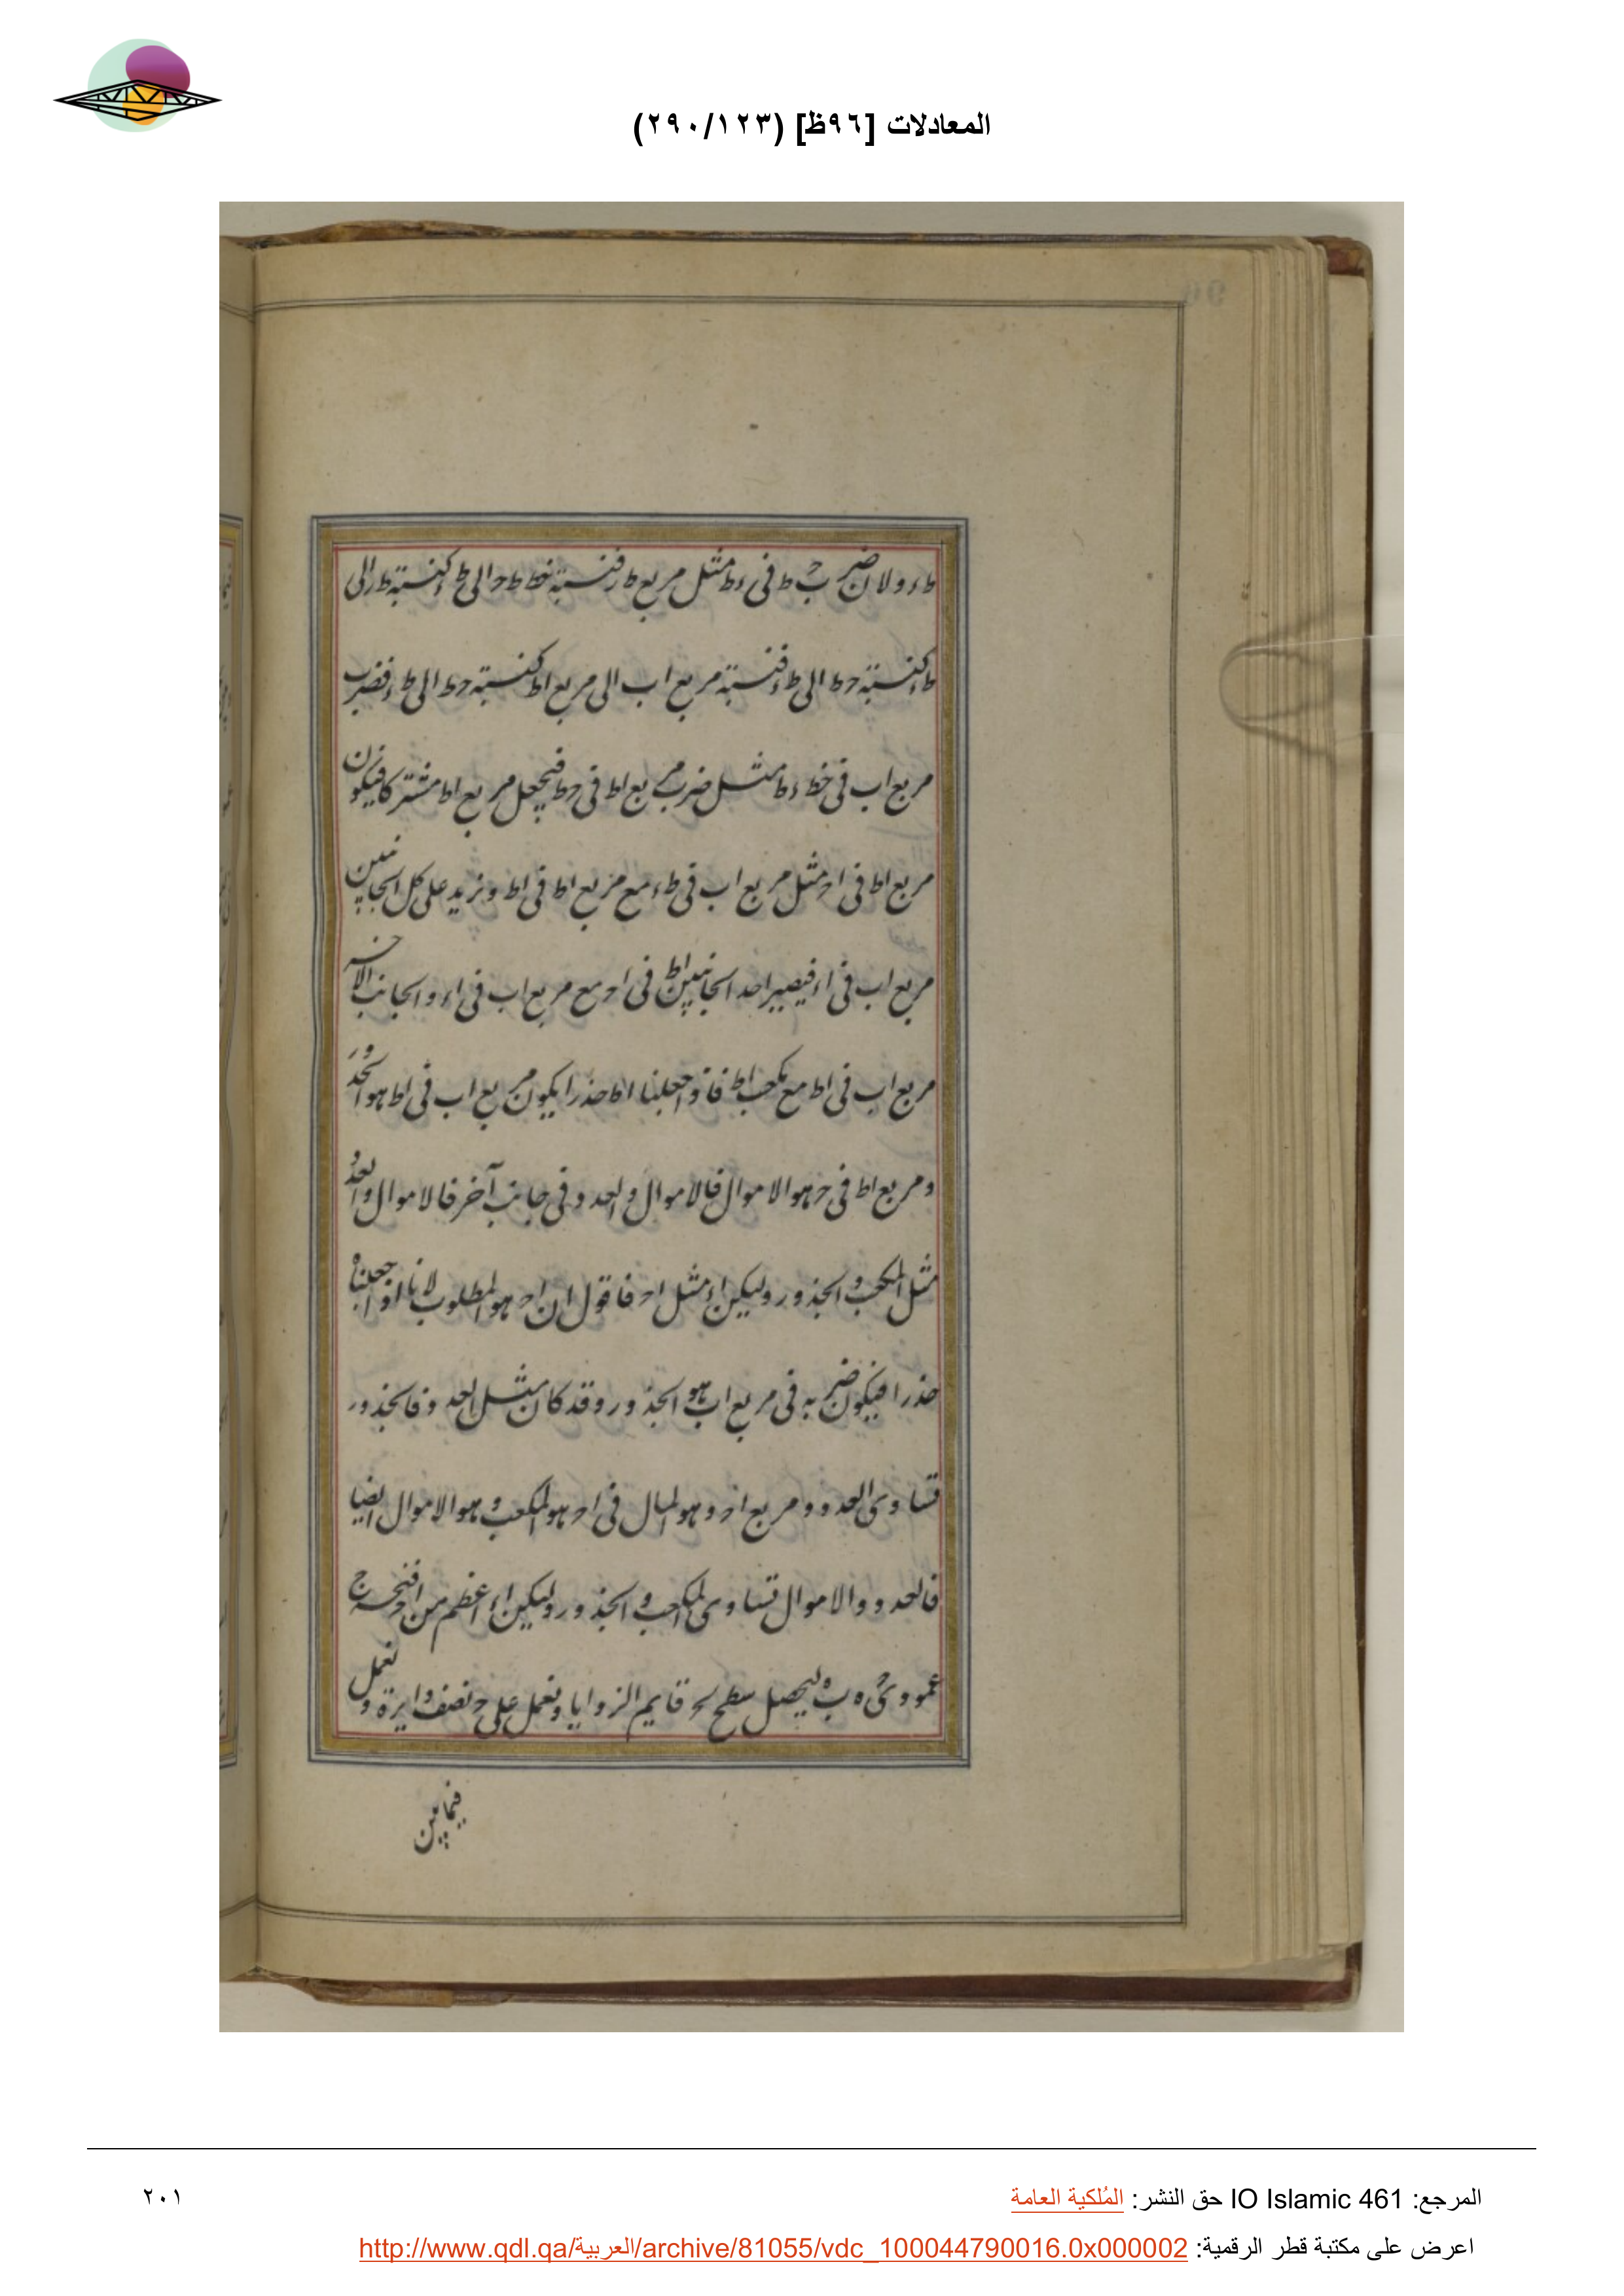 المعادلات [٩٦ظ] (٢٩٠/١٢٣)
طء ولان ضرب حط فى ءط مثل مربع طر فنسبة خط طح الى طء كنسبة طر الى
طء كنسبة حط الى طء فنسبة مربع اب الى مربع اط كنسبة حط الى طء فضرب
مربع اب فى خط ءط مثل ضرب مربع اط فى حط فيجعل مربع اط مشتركا فيكون
مربع اط فى اح مثل مربع اب فى طء مع مربع اط فى اط ونزيد على كل الجانبين
مربع اب فى اء فيصير احد الجانبين اط فى اح مع مربع اب فى اء والجانب الاخر
مربع اب فى اط مع مكعب اط فاذا جعلنا اط جذرا يكون مربع اب فى اط هو الجذور
ومربع اط فى ح هو الاموال فالاموال والعدد فى جانب آخر فالاموال والعدد
مثل المكعب والجذور وليكن اء مثل اح فاقول ان اح هو المطلوب لانا اذا جعلناه
جذرا فيكون ضربه فى مربع اب هو الجذور وقد كان مثل العدد فالجذور
تساوى العدد ومربع اح وهو المال فى اح هو المكعب وهو الاموال ايضا
فالعدد والاموال تساوى المكعب والجذور وليكن اء اعظم من اح فنخرج
عمودى ح ه ب ه ليحصل سطح لح قايم الزوايا ونعمل على ح نصف دايرة ونعمل
فيما بين
المرجع: IO Islamic 461 حق النشر: المُلكية العامة
٢٠١
اعرض على مكتبة قطر الرقمية: http://www.qdl.qa/العربية/archive/81055/vdc_100044790016.0x000002